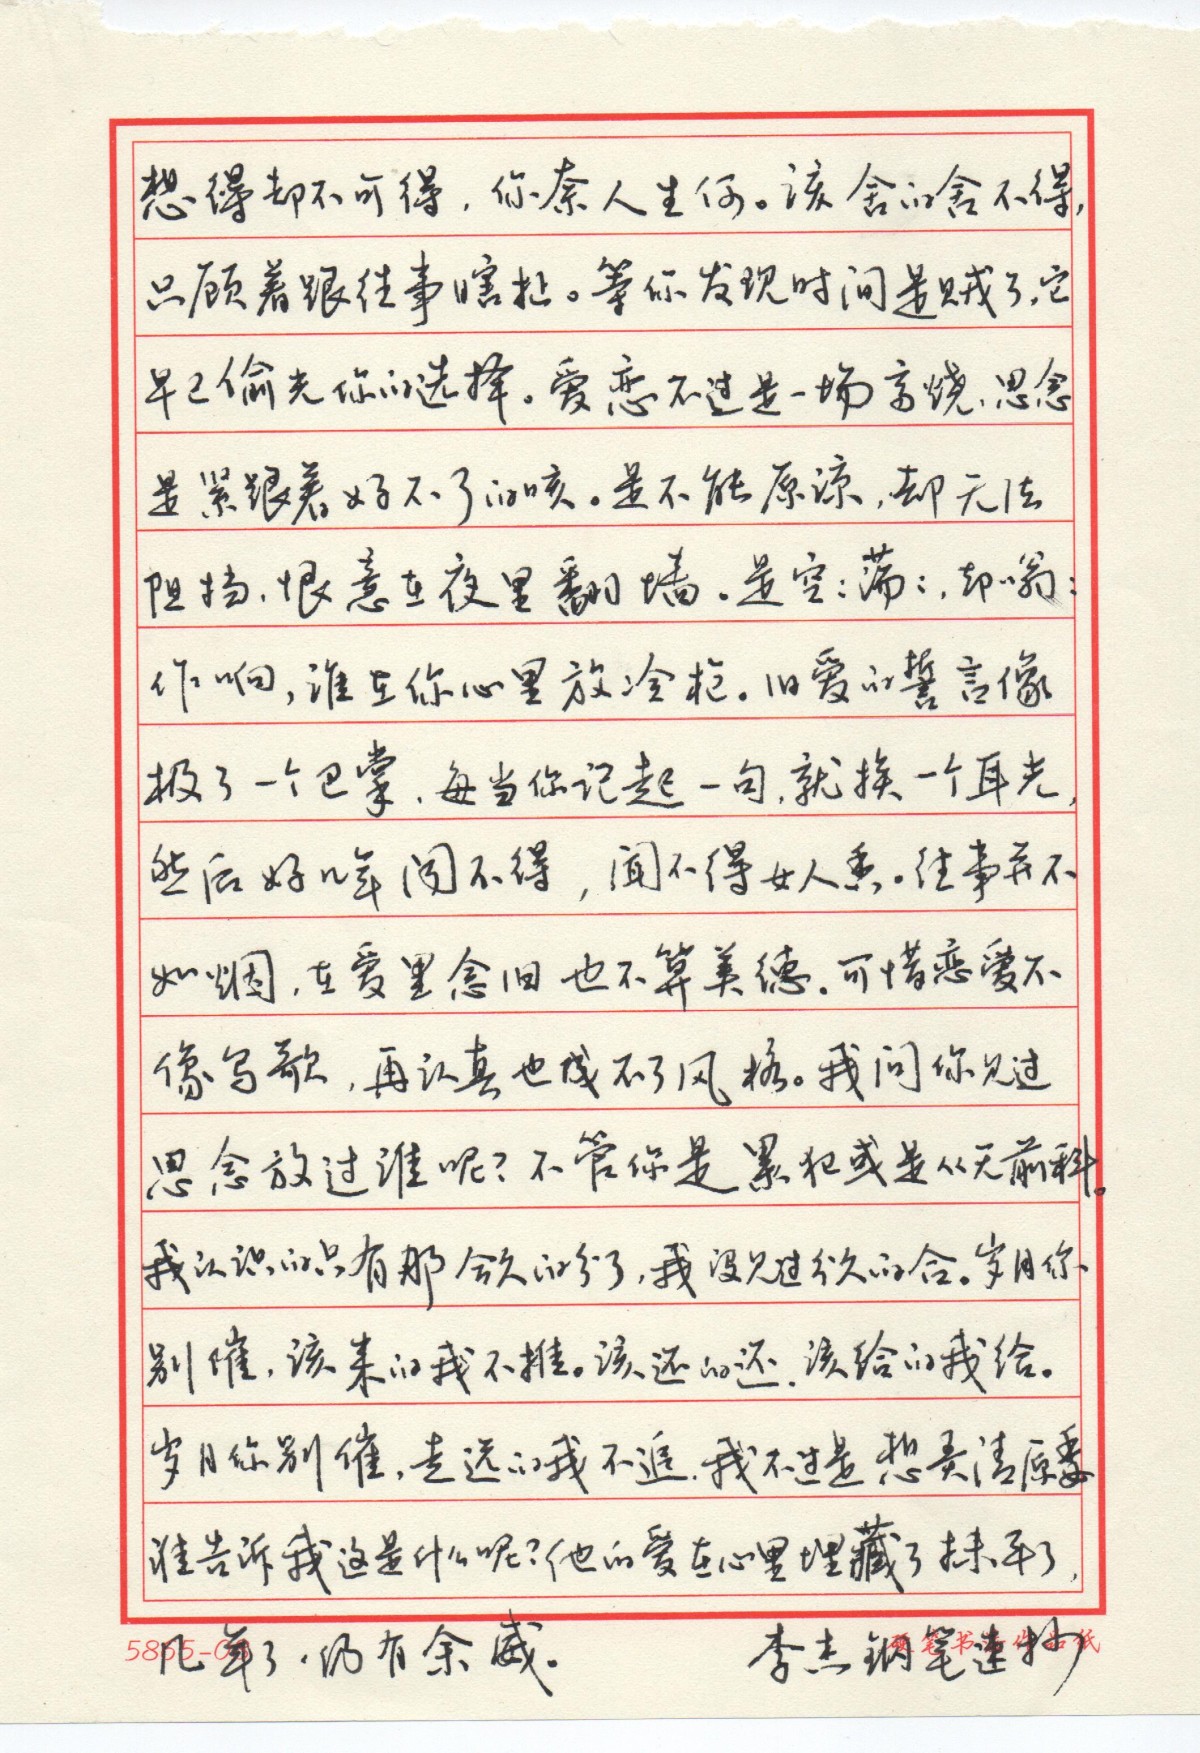 想得却不可得，你奈人生何。该舍的舍不得，
只顾着跟往事瞎扯。等你发现时间是贼了，它
早已偷光你的选择。爱恋不过是一场高烧，思念
是紧跟着好不了的咳。是不能原谅，却无法
阻挡，恨意在夜里翻墙。是空:荡:，却嗡:
作响，谁在你心里放冷枪。旧爱的誓言像
极了一个巴掌，每当你记起一句，就挨一个耳光，
然后好几年闻不得，闻不得女人香。往事并不
如烟，在爱里念旧也不算美德。可惜恋爱不
像写歌，再认真也成不了风格。我问你见过
思念放过谁呢？不管你是累犯或是从无前科。
我认识的只有那合久的分了，我没见过分久的合。岁月你
别催，该来的我不推。该还的还，该给的我给。
岁月你别催，走远的我不追，我不过是想弄清原委
谁告诉我这是什么呢？他的爱在心里埋藏了抹平了，
几年了，仍有余威。
李杰钢笔速抄